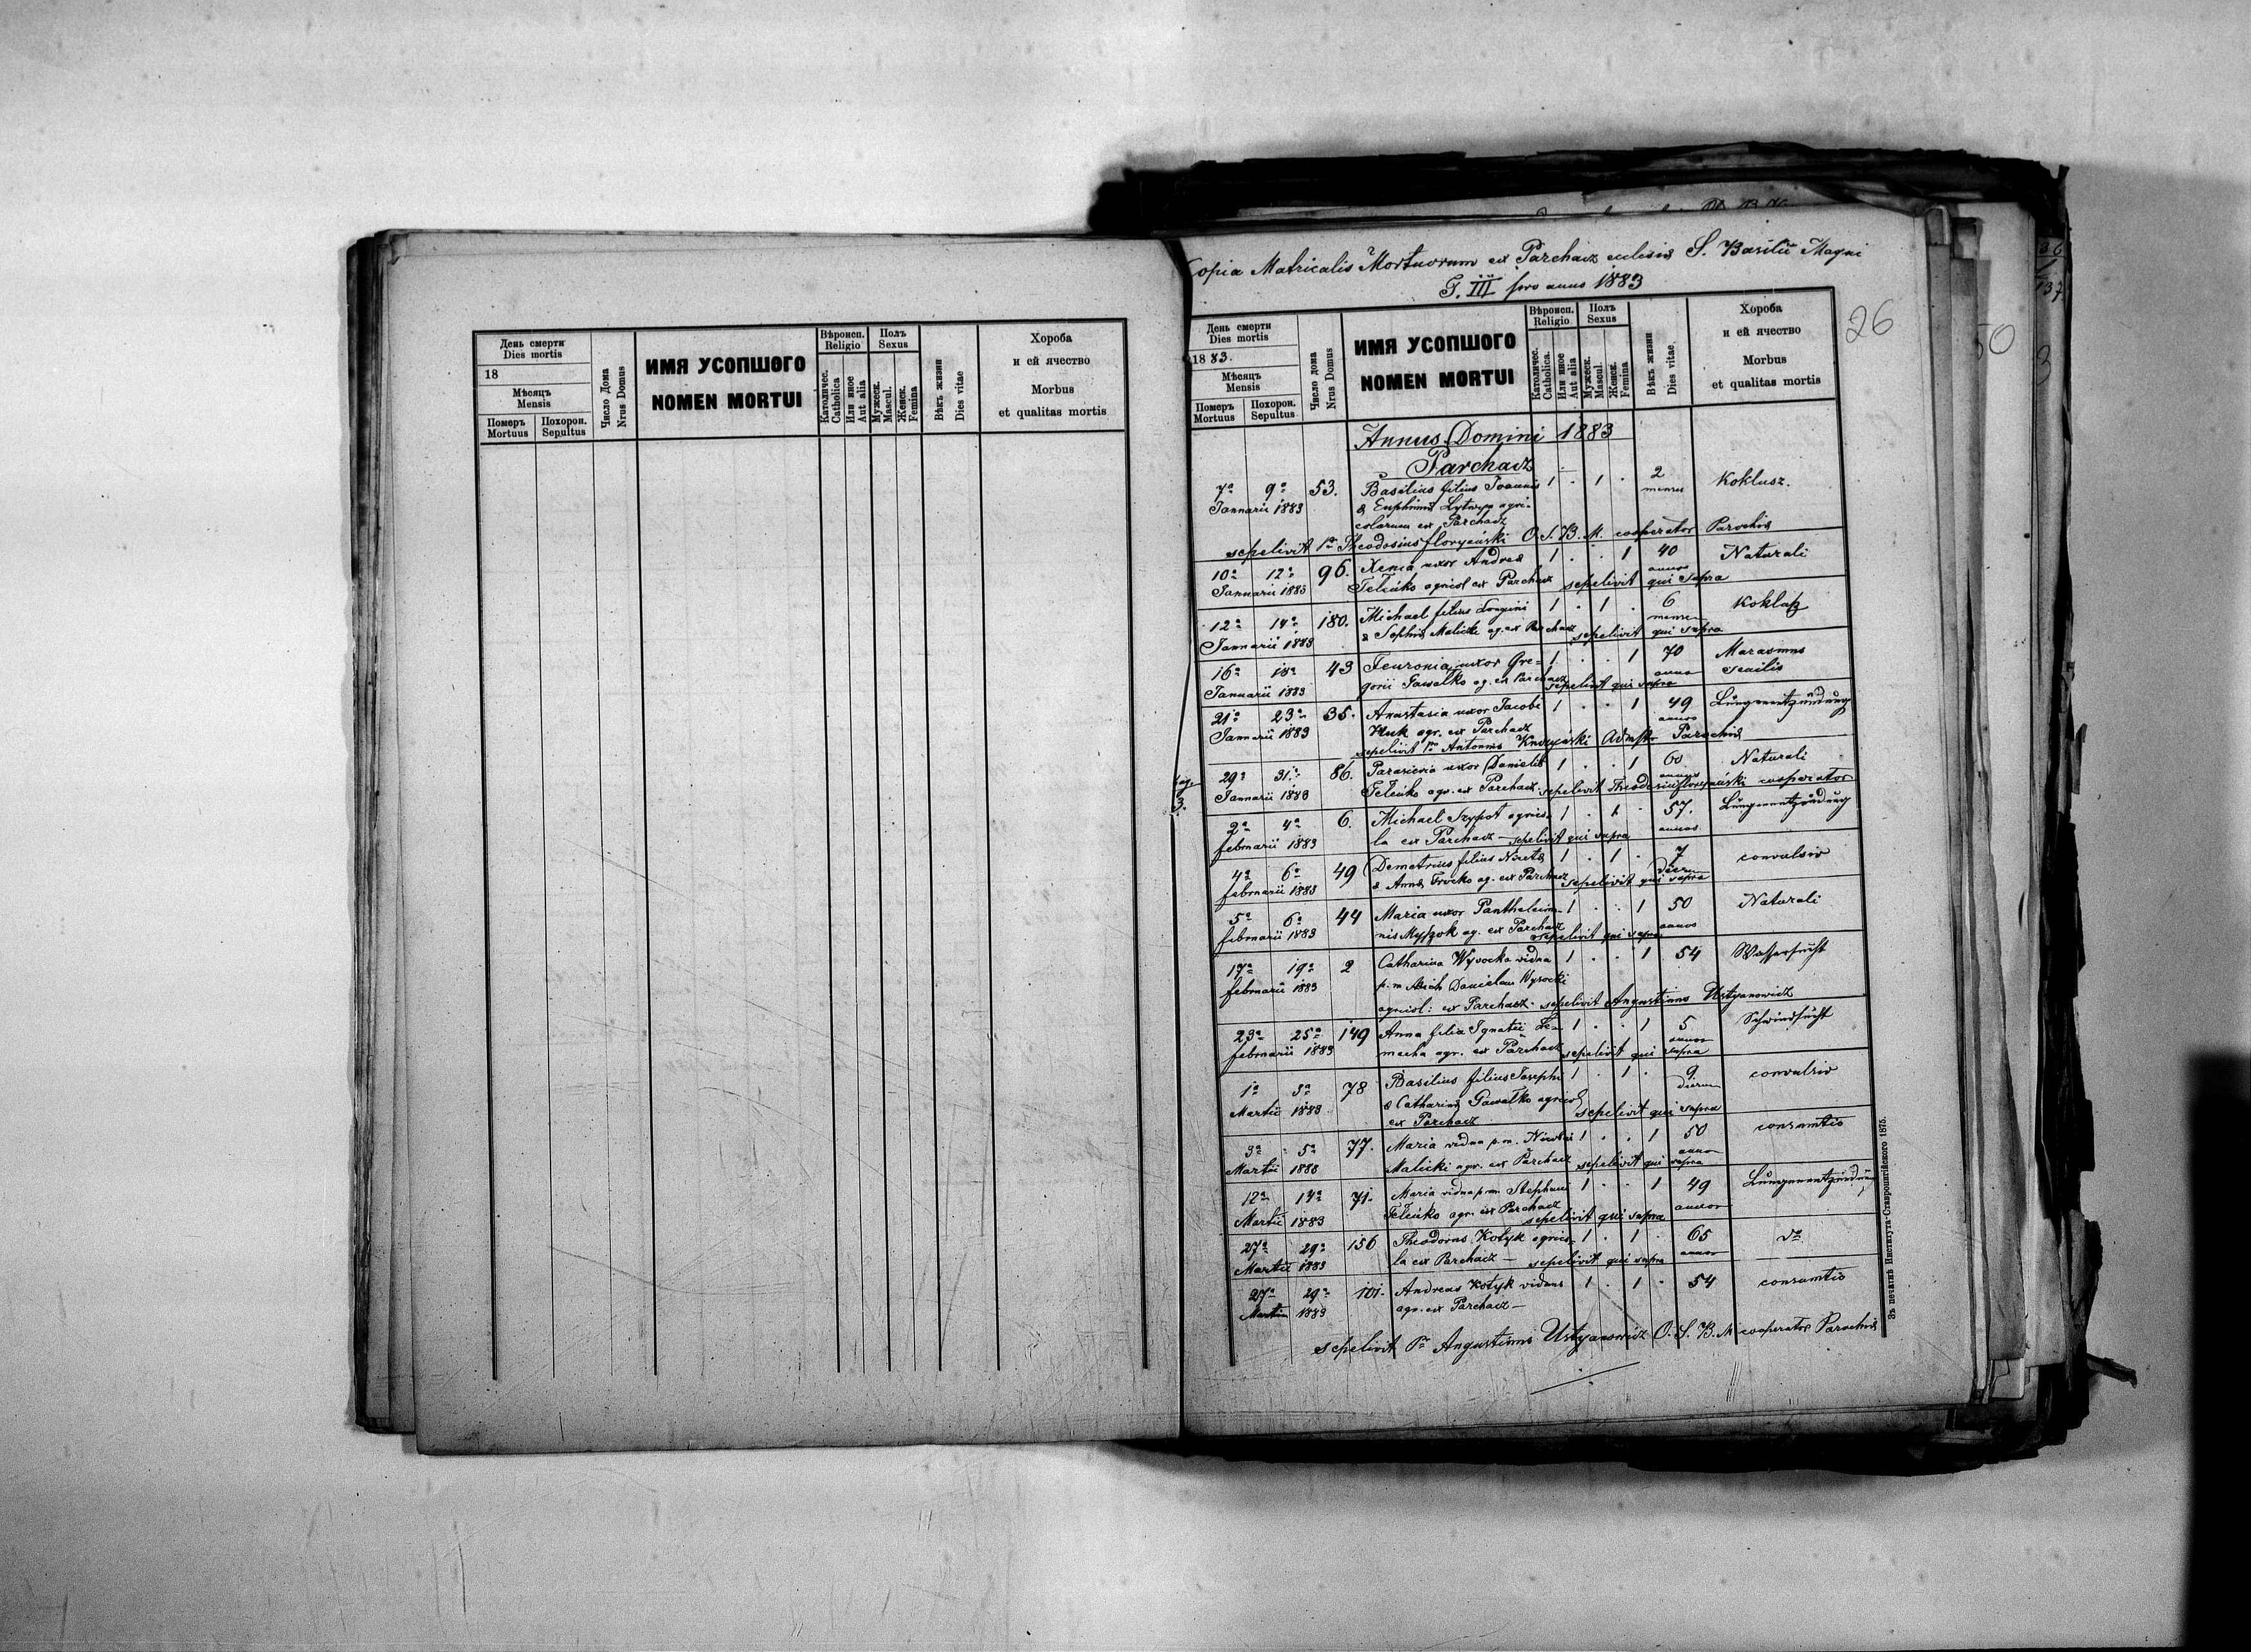 День смерти
Dies mortis
18
Мѣсяцъ
Mensis
Померъ
Mortuus
Похорон.
Sepultus
Число Дома
Nrus Domus
ИМЯ УСОПШОГО
NOMEN MORTUI
Вѣроисп.
Religio
Католичес.
Catholica
Или иное
Aut alia
Полъ
Sexus
Мужеск.
Mascul.
Женск.
Femina
Вѣкъ жизни
Dies vitae
Хороба
и ей ячество
Morbus
et qualitas mortis
Copia Matricalis Mortuorum ex Parchacz eclesiae S. Basilii Magni
T. III pro anno 1883
26
День смерти
Dies mortis
1883.
Мѣсяцъ
Mensis
Померъ
Mortuus
Похорон.
Sepultus
Число дома
Nrus Domus
ИМЯ УСОПШОГО
NOMEN MORTUI
Вѣроисп.
Religio
Католичес.
Catholica.
Или иное
Aut alia
Полъ
Sexus
Мужеск.
Mascul.
Женск.
Femina
Вѣкъ жизни
Dies vitae
Хороба
и ей ячество
Morbus
et qualitas mortis
Annus Domini 1883
Parchacz
7a 9a 53. Basilius filius Joannis 1 . 1 . 2 Koklusz.
Januarii 1883 & Euphrimiae Lytwyn agri- menses
colarum ex Parchacz
sepelivit Pr Theodosius O. S. B. M. cooperator Parochiae
10a 12a 96. Xenia uxor Andreae 1 . . 1 40 Naturali
Januarii 1883 agricol ex Parchacz sepelivit qui supra annos
12a 14a 180. Michael filius Longini 1 . 1 . 6
Januarii 1883 & Sophiae Malicki ag. ex Parchacz sepelivit qui supra menses
16a 18a 43 Feuronia uxor Gre- 1 . . 1 70 Marasmus
Januarii 1883 gorii Gawalko ag. ex Parchacz sepelivit qui supra annos senilis
21a 23a 35. Anastasia uxor Jacobi 1 . . 1 49 Lungenentzündung
Januarii 1883 agr. ex Parchacz annos
sepelivit Pr Antonius Parochiae
Pag. 3.
29a 31a 86. Parascevia uxor Danielis 1 . . 1 60 Naturali
Januarii 1883 agr. ex Parchacz sepelivit cooperator
2a 4a 6. Michael Szypot agrico- 1 . 1 . 57. Lungenentzündung
februarii 1883 la ex Parchacz – sepelivit qui supra annos
4a 6a 49 Demetrius filius Nicetae 1 . 1 . 7 convulsio
februarii 1883 & Annae ag. ex Parchacz sepelivit qui supra dierum
5a 6a 44 Maria uxor 1 . . 1 50 Naturali
februarii 1883 ag. ex Parchacz sepelivit qui supra annos
17a 19a 2 Catharina Wysocka vidua 1 . . 1 54 Wassersucht
februarii 1883 p. m Wysocki
agricol: ex Parchacz - sepelivit Augustinus Ustyanowicz
23a 25a 149 Anna filia Ignatii 1 . . 1 5 Schwindsucht
februarii 1883 agr. ex Parchacz sepelivit qui supra annos
1a 3a 78 Basilius filius Josephi 1 . 1 . 9 convulsio
Martii 1883 & Catharinae Gawalko agricol dierum
ex Parchacz sepelivit qui supra
3a 5a 77. Maria vidua p. m. Nicolai 1 . . 1 50 consumtio
Martii 1883 Malicki agr. ex Parchacz sepelivit qui supra annos
12a 14a 71. Maria vidua p m Stephani 1 . . 1 49 Lungenentzündung
Martii 1883 agr. ex Parchacz sepelivit qui supra annos
27a 29a 156 Theodorus Kotyk agrico- 1 . 1 . 65 do
Martii 1883 la ex Parchacz – sepelivit qui supra annos
27a 29a 101. Andreas Kotyk viduus 1 . 1 . 54 consumtio
Martii 1883 agr. ex Parchacz –
sepelivit Pr Augustinus Ustyanowicz O. S. B. M cooperator Parochiae
Въ печатнѣ Института-Ставропигійского 1875.